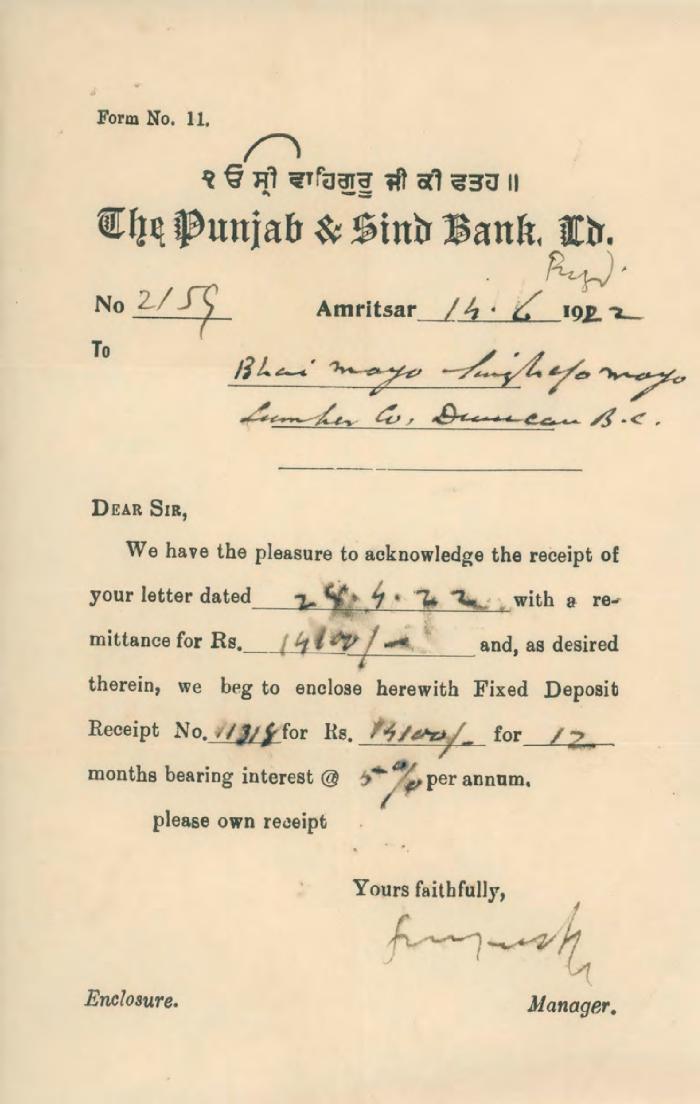 Form No. 11.
੧ ਓ ਸ੍ਰੀ ਵਾਹਿਗੁਰੂ ਜੀ ਕੀ ਫਤਹ॥
The Punjab & Sind Bank, Ld.
Regd.
No 2159 Amritsar 14.6 1922
To
Bhai mayo Singh c/o mayo
Lumber Co, Duncan B.C.
DEAR SIR,
We have the pleasure to acknowledge the receipt of
your letter dated 24.4.22 with a re-
mittance for Rs. 14100/- and, as desired
therein, we beg to enclose herewith Fixed Deposit
Receipt No. for Rs. 14100/- for 12
months bearing interest @ 5% per annum.
please own receipt
Yours faithfully,
Enclosure. Manager.